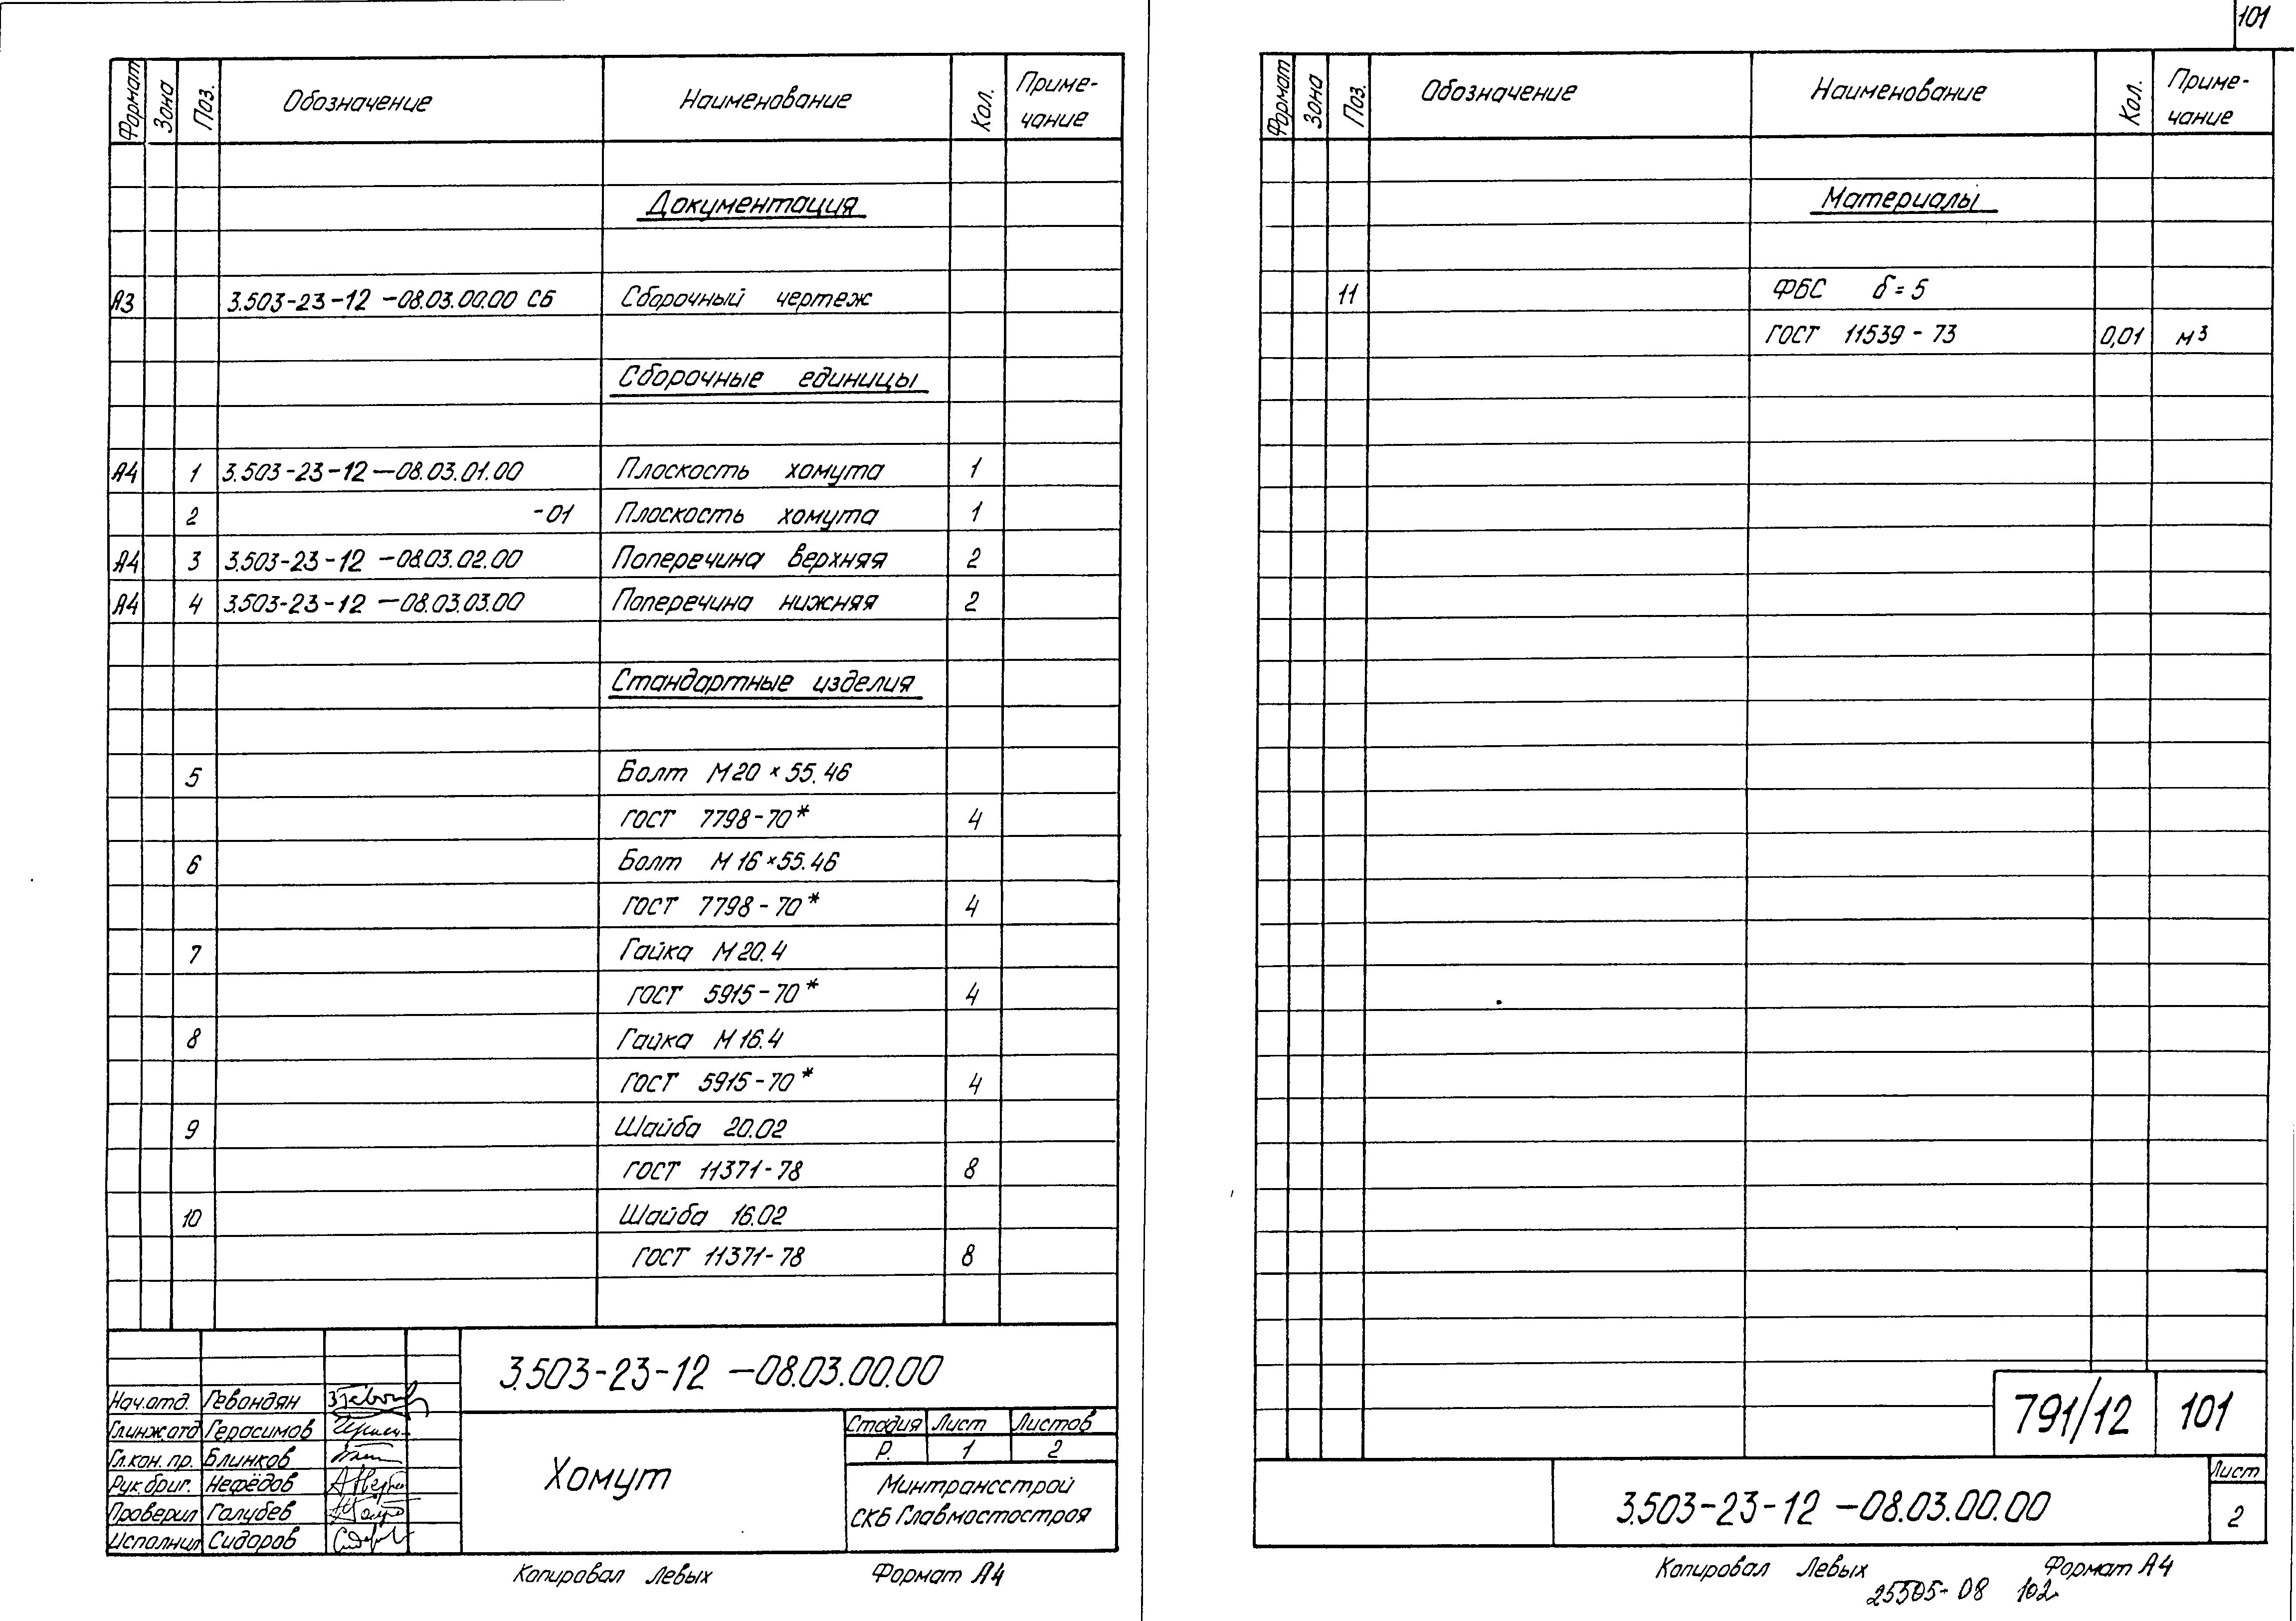 101
Формат Зона Поз. Обозначение Наименование Кол. Приме-
чание
Документация
А3 3.503-23-12-08.03.00.00 СБ Сборочный чертеж
Сборочные единицы
А4 1 3.503-23-12-08.03.01.00 Плоскость хомута 1
2 -01 Плоскость хомута 1
А4 3 3.503-23-12-08.03.02.00 Поперечина верхняя 2
А4 4 3.503-23-12-08.03.03.00 Поперечина нижняя 2
Стандартные изделия
5 Болт М20×55.46
ГОСТ 7798-70* 4
6 Болт М16×55.46
ГОСТ 7798-70* 4
7 Гайка М20.4
ГОСТ 5915-70* 4
8 Гайка М16.4
ГОСТ 5915-70* 4
9 Шайба 20.02
ГОСТ 11371-78 8
10 Шайба 16.02
ГОСТ 11371-78 8
3.503-23-12-08.03.00.00
Нач.отд. Гевондян
Гл.инж.отд Герасимов
Гл.кон.пр. Блинков
Рук.бриг. Нефёдов
Проверил Голубев
Исполнил Сидоров
Хомут
Стадия Лист Листов
Р. 1 2
Минтрансстрой
СКБ Главмостостроя
Копировал Левых Формат А4
Формат Зона Поз. Обозначение Наименование Кол. Приме-
чание
Материалы
11 ФБС δ=5
ГОСТ 11539-73 0,01 м³
791/12 101
3.503-23-12-08.03.00.00
Лист
2
Копировал Левых Формат А4
25505-08 102